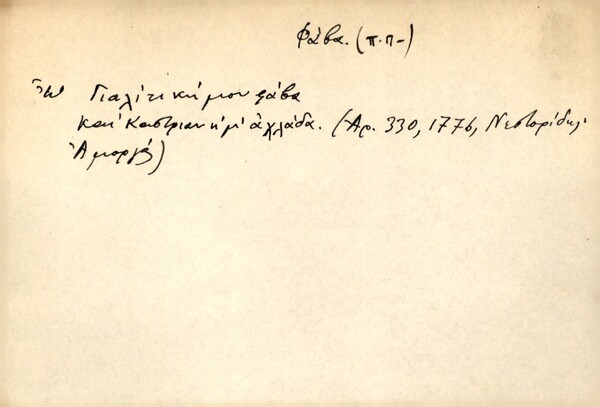 Φάβα. (π.π-)
Ὦ Γιαλίτικη μου φάβα
καὶ Καστριανή μ' ἀχλάδα. (Ἀρ. 330, 1776, Νεστορίδης.
Ἀμοργός)